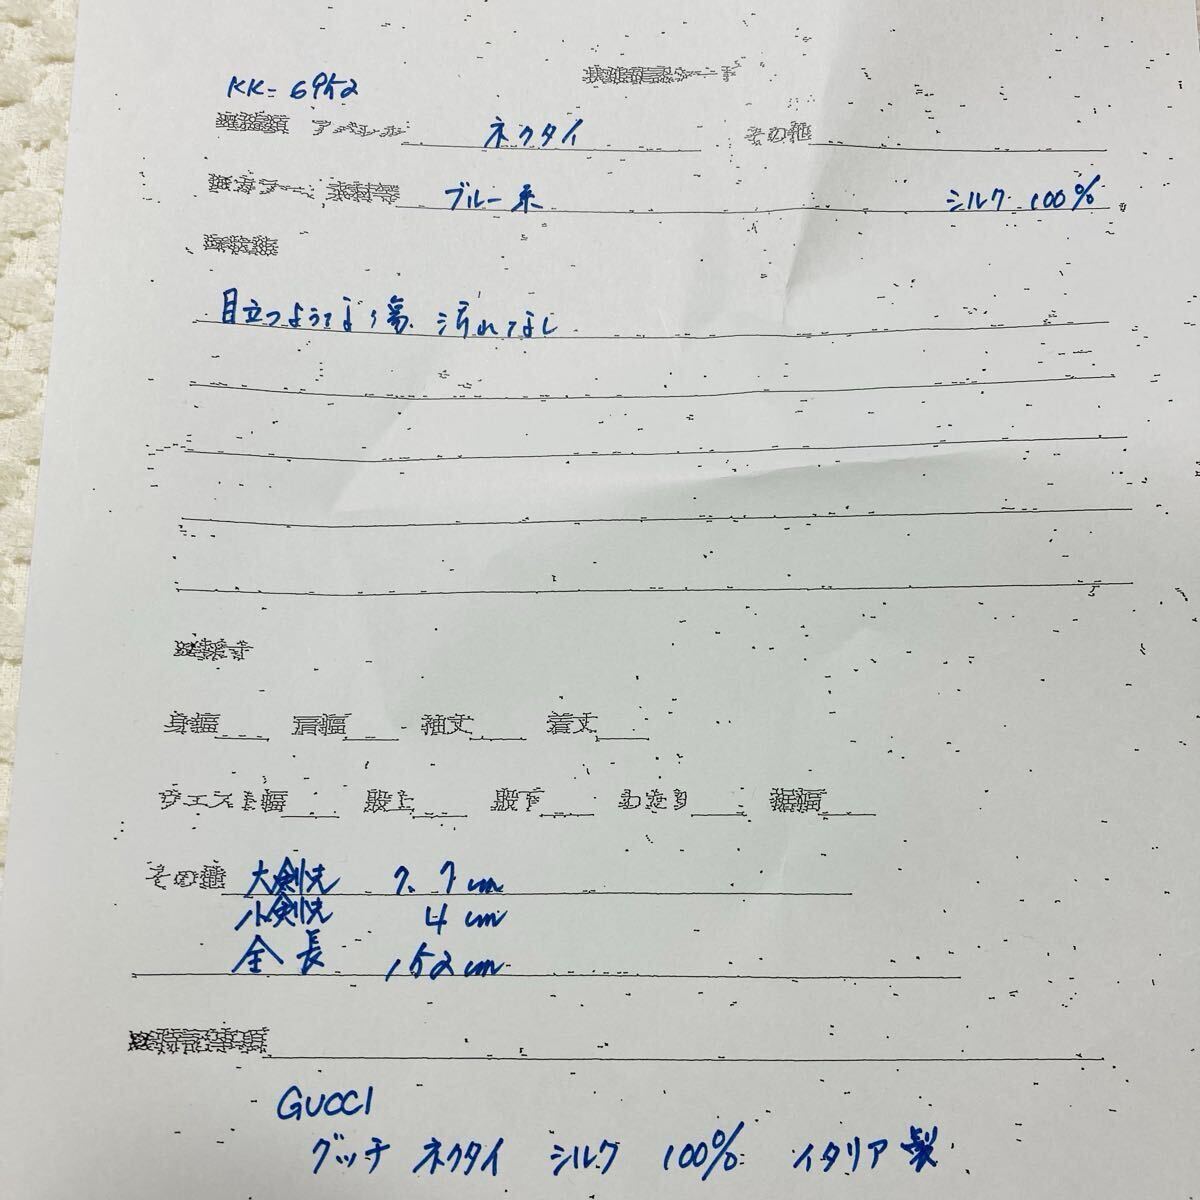 KK-6952
アパレル ネクタイ その他
ブルー系 シルク 100%
目立つような傷、汚れなし
身幅 肩幅 袖丈 着丈
ウエスト幅 股上 股下 わたり 裾幅
その他 大剣先 7.7cm
小剣先 4cm
全長 152cm
特記事項
GUCCI
グッチ ネクタイ シルク 100% イタリア製